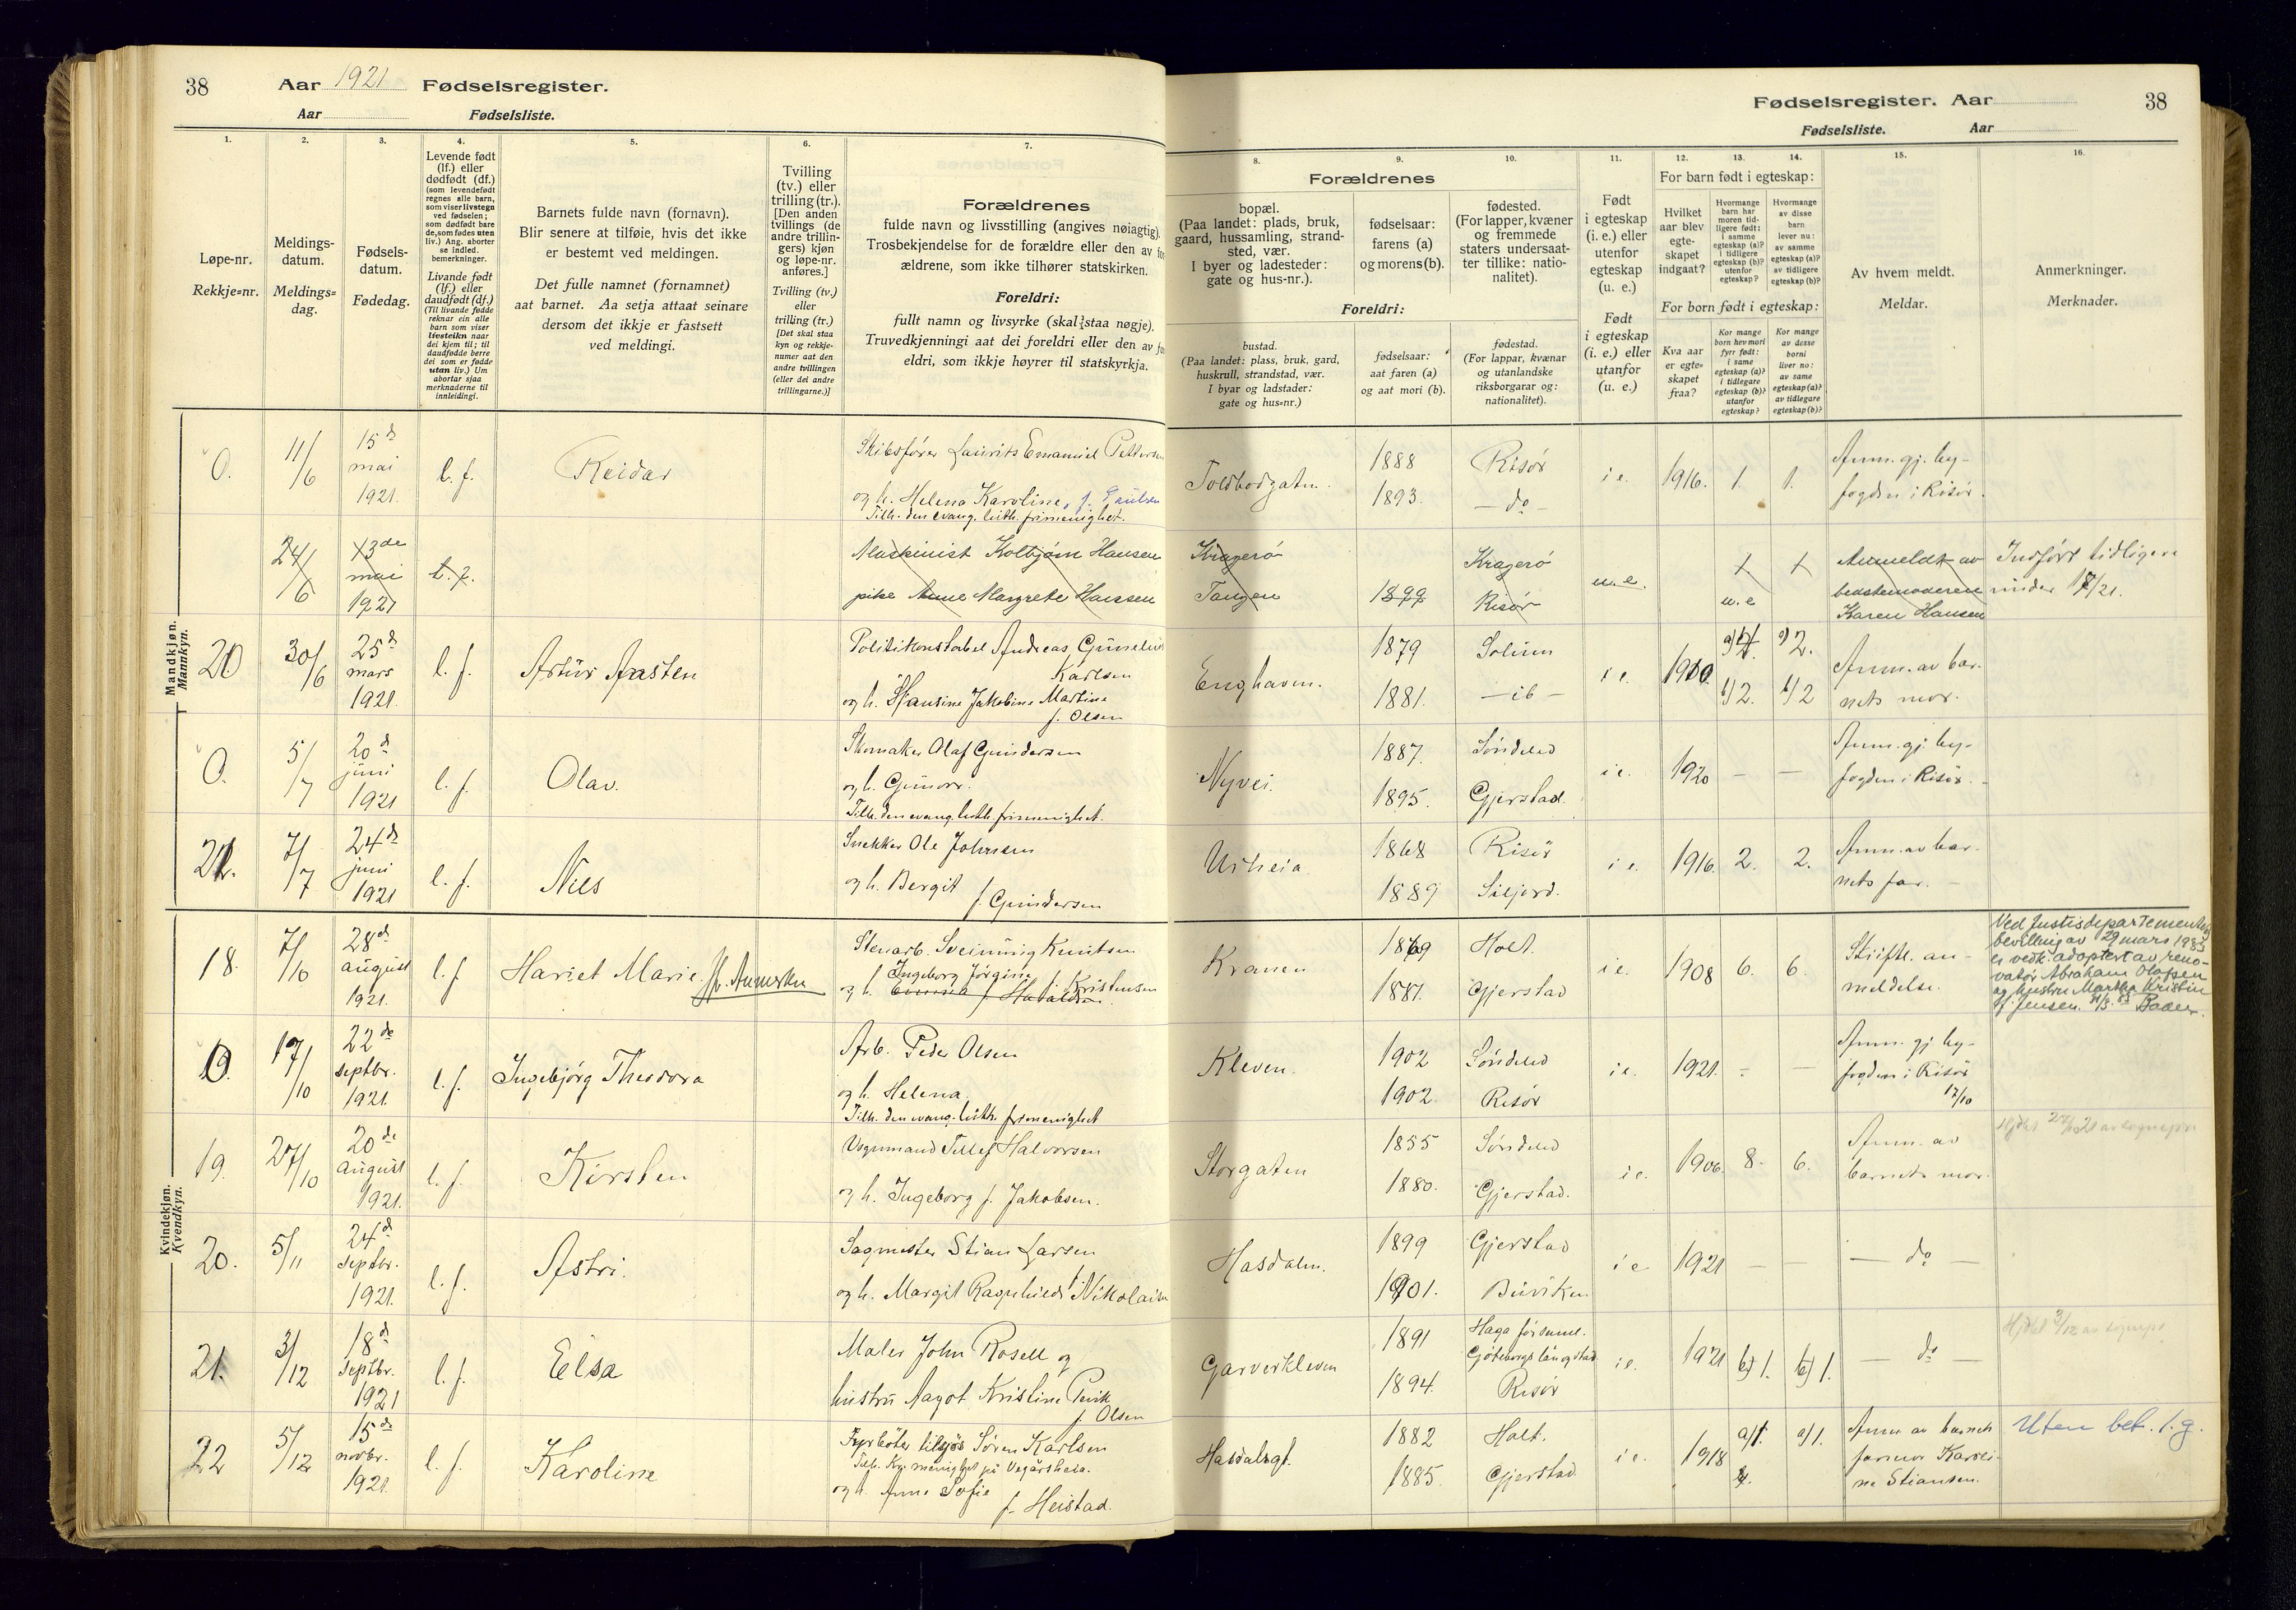 38
Aar 1921 Fødselsregister.
Aar Fødselsliste.
Fødselsregister. Aar
38
Fødselsliste. Aar
1.
Løpe-nr.
Rekkje=nr.
2.
Meldings-
datum.
Meldings=
dag.
3.
Fødsels-
datum.
Fødedag.
4.
Levende født
(lf.) eller
dødfødt (df.)
(som levendefødt
regnes alle barn,
som viser livstegn
ved fødselen;
som dødfødt bare
de, som fødes uten
liv.) Ang. aborter
se indled.
bemerkninger.
Livande født
(lf.) eller
daudfødt (df.)
(Til livande fødde
reknar ein alle
barn som viser
livsteikn naar
dei kjem til; til
daudfødde berre
dei som er fødde
utan liv.) Um
abortar sjaa
merknaderne til
innleidingi.
5.
Barnets fulde navn (fornavn).
Blir senere at tilføie, hvis det ikke
er bestemt ved meldingen.
Det fulle namnet (fornamnet)
aat barnet. Aa setja attaat seinare
dersom det ikkje er fastsett
ved meldingi.
6.
Tvilling
(tv.) eller
trilling (tr.).
[Den anden
tvillings (de
andre trillin-
gers) kjøn
og løpe-nr.
anføres.]
Tvilling (tv.)
eller
trilling (tr.)
[Det skal staa
kyn og rekkje-
numer aat den
andre tvillingen
(eller dei andre
trillingarne.)]
7.
Forældrenes
fulde navn og livsstilling (angives nøiagtig).
Trosbekjendelse for de forældre eller den av for-
ældrene, som ikke tilhører statskirken.
Foreldri:
fullt namn og livsyrke (skal staa nøgje).
Truvedkjenningi aat dei foreldri eller den av for-
eldri, som ikkje høyrer til statskyrkja.
8.
Forældrenes
bopæl.
(Paa landet: plads, bruk,
gaard, hussamling, strand-
sted, vær.
I byer og ladesteder:
gate og hus-nr.).
Foreldri:
bustad.
(Paa landet: plass, bruk, gard,
huskrull, strandstad, vær.
I byar og ladstader:
gate og hus=nr.)
9.
fødselsaar:
farens (a)
og morens (b).
fødselsaar:
aat faren (a)
og aat mori (b).
10.
fødested.
(For lapper, kvæner
og fremmede
staters undersaat-
ter tillike: natio-
nalitet).
fødestad.
(For lappar, kvænar
og utanlandske
riksborgarar og:
nationalitet).
11.
Født
i egteskap
(i. e.) eller
utenfor
egteskap
(u. e.)
Født
i egteskap
(i. e.) eller
utanfor
(u. e.)
12. 13. 14.
For barn født i egteskap:
Hvilket
aar blev
egte-
skapet
indgaat?
Hvormange
barn har
moren tid-
ligere født:
i samme
egteskap (a)?
i tidligere
egteskap (b)?
utenfor
egteskap?
Hvormange
av disse
barn
lever nu:
av samme
egteskap (a)?
av tidligere
egteskap (b)?
For born født i egteskap:
Kva aar
er egte=
skapet
fraa?
Kor mange
born hev mori
fyrr født:
i same
egteskap (a)?
i tidlegare
egteskap (b)?
utanfor
egteskap?
Kor mange
av desse
borni
liver no:
av same
egteskap (a)?
av tidlegare
egteskap (b)?
15.
Av hvem meldt.
Meldar.
16.
Anmerkninger.
Merknader.
Mandkjøn.
Mannkyn.
0. 11/6 15d mai 1921. l. f. Reidar
Skibsfører Laurits Emanuel Pettersen
og h. Helena Karoline, f. Paulsen
Tilh. den evang. luth. frimenighet.
Toldbodgaten. 1888 1893. Risør – do – i e. 1916. 1. 1.
Anm. gj. by-
fogden i Risør.
24/6 13de mai 1921 l. f.
Maskinist Kolbjørn Hansen
pike Anne Margrete Hanssen
Kragerø Tangen 1899 Kragerø Risør u. e. u. e
Anmeldt av
bedstemoderen
Karen Hansen
Indført tidligere
under 17/21.
20 30/6 25d mars 1921. l. f. Artur Aasten
Politikonstabel Andreas Gunelius
Karlsen
og h. Hansine Jakobine Martine
f. Olsen
Enghaven. 1879 1881. Solum – ib – i e. 1900 b) 2. a) 2. b) 2
Anm. av bar-
nets mor.
0. 5/7 20d juni 1921 l. f. Olav.
Skomaker Olaf Gundersen
og h. Gunvor.
Tilh. den evang. luth. frimenighet.
Nyvei. 1887. 1895. Søndeled Gjerstad. i e. 1920 – –
Anm. gj. by-
fogden i Risør.
21. 7/7 24d juni 1921 l. f. Nils
Snekker Ole Johnsen
og h. Bergit
f. Gundersen
Urheia 1868 1889 Risør Siljord. i e. 1916. 2. 2.
Anm. av bar-
nets far.
Kvindekjøn.
Kvendkyn.
18. 7/10 28d august 1921. l. f. Hariet Marie. Se. Anmerkn
Stenarb. Sveinung Knutsen
Ingeborg Jørgine f. Kristensen
og h. Emma f. Haraldsen.
Kranen 1869 1881. Holt. Gjerstad i e. 1908 6. 6.
Skriftl. an-
meldelse.
Ved Justisdepartementets
bevilling av 29 mars 1933
er vedk. adoptert av reno-
vatør Abraham Olafsen
og hustru Martha Kristin
f. Jensen.
0. 17/10 22de septbr. 1921. l. f. Ingebjørg Theodora
Arb. Peder Olsen
og h. Helena
Tilh. den evang. luth. frimenighet
Kleven. 1902 1902. Søndeled Risør i e. 1921. – –
Anm. gj. by-
fogden i Risør
17/10
19. 27/10 20de august 1921. l. f. Kirsten
Vognmand Tellef Halvorsen
og h. Ingeborg f. Jakobsen.
Storgaten 1855 1880. Søndeled Gjerstad. i e. 1906. 8. 6.
Anm. av
barnets mor.
20. 5/11 24d septbr. 1921. l. f. Astri.
Sagmester Stian Larsen
og h. Margit Ragnhild f. Nikolaisen
Hasdalen. 1899 1901. Gjerstad Buviken i e 1921 – – – do –
21. 3/12 18d septbr. 1921 l. f. Elsa
Maler John Rosell og
hustru Aagot Kristine
f. Olsen
Garverkleven 1891 1894. Haga församl. Göteborgs län Risør i e. 1921 b) 1. b) 1. – do –
22 5/12 15de novbr. 1921. l. f. Karoline
Fyrbøter tilsjøs Søren Karlsen
menighet på Vegårsheia.
og h. Anne Sofie
f. Heistad.
Hasdalsgt. 1882 1885. Holt. Gjerstad i e. 1918 a) 1. a) 1.
Anm. av barnets
farmor Karoli-
ne Stiansen.
Uten bet. l. g.